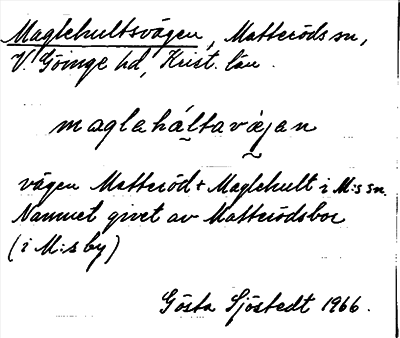 Maglehultsvägen, Matteröds sn,
V. Göinge hd, Krist. län.
maglaháltavæjan
vägen Matteröd + Maglehult i M:s sn.
Namnet givet av Matterödsbor
(i M:s by)
Gösta Sjöstedt 1966.